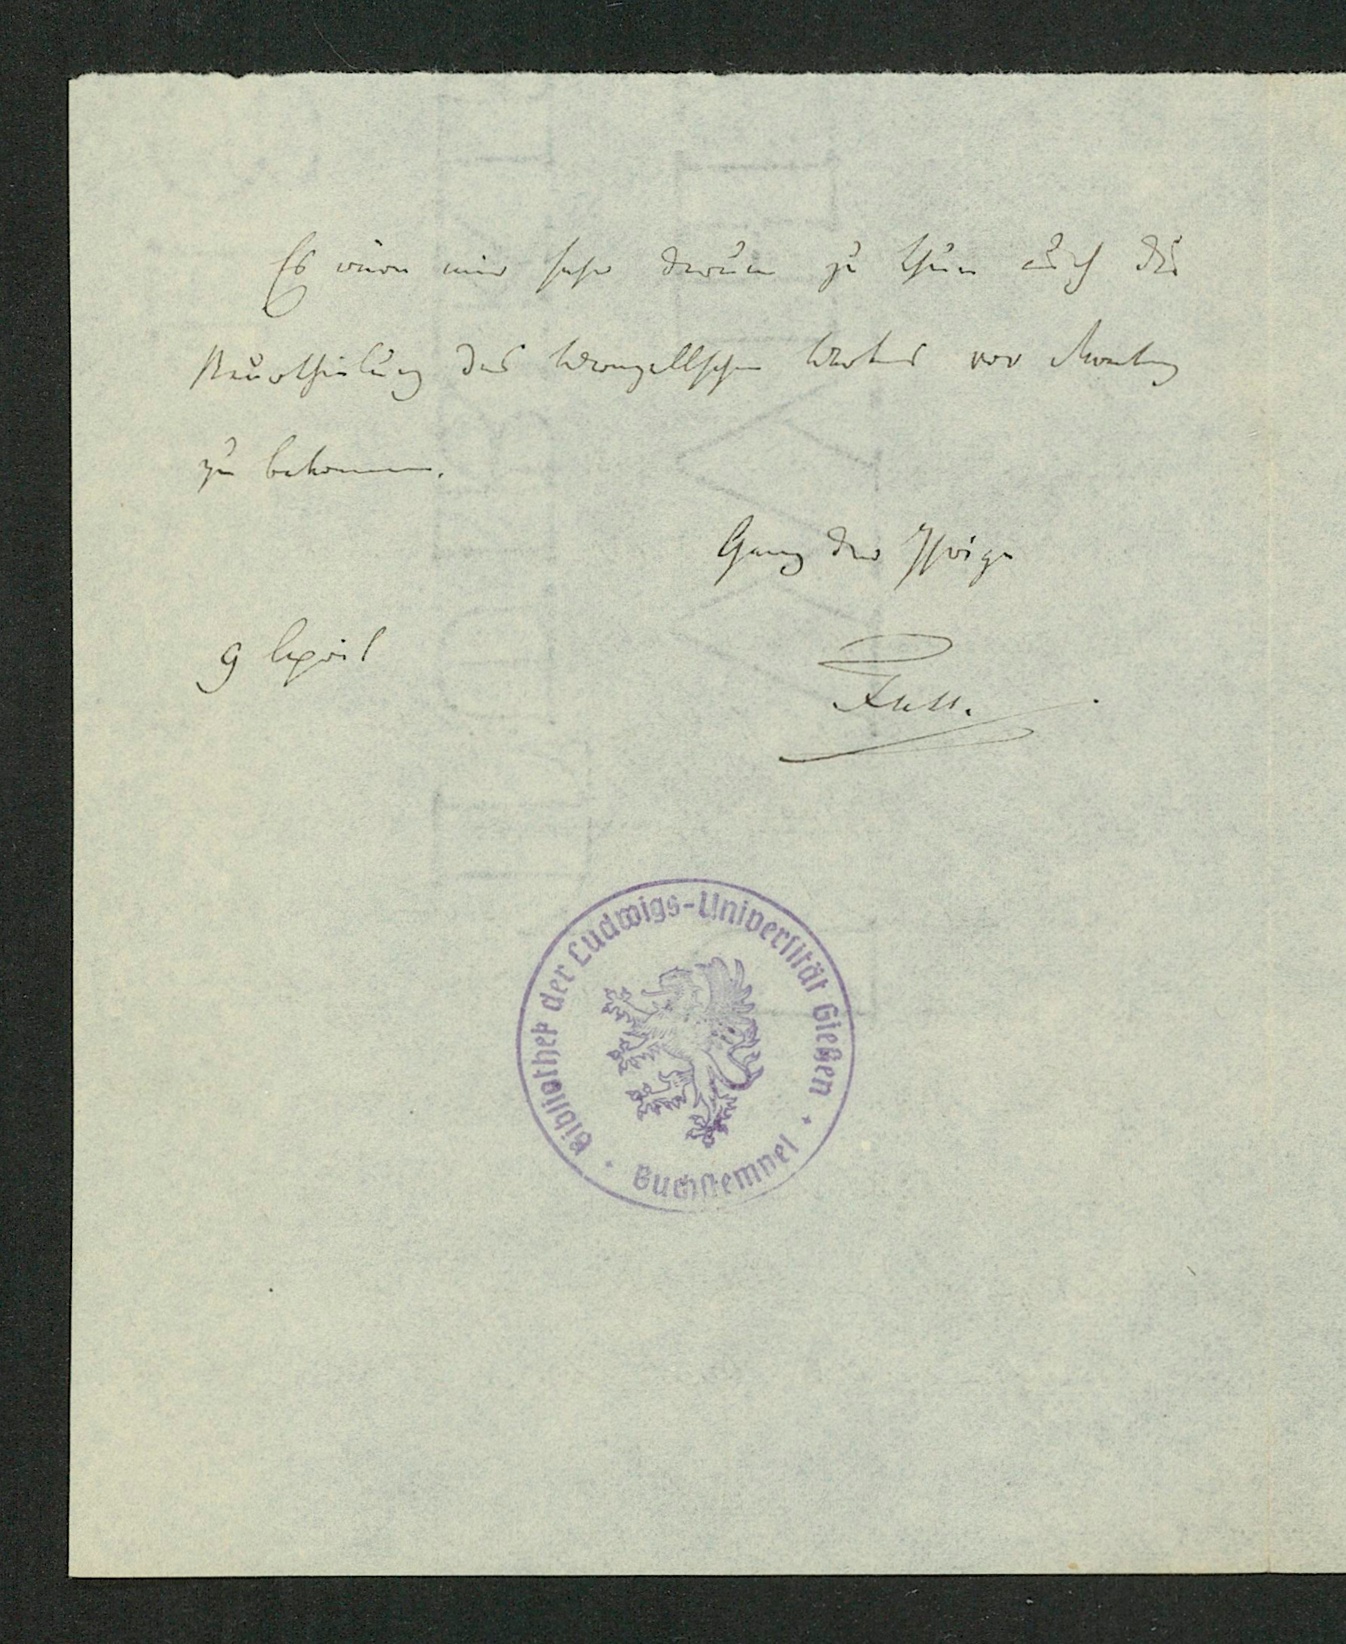 Es wäre mir sehr darum zu thun auch die
Beurtheilung des Wrangellschen Werkes vor Montag
zu bekommen.
Ganz der Ihrige
9 April
Fuss.
Bibliothek der Ludwigs-Universität Gießen
Buchstempel